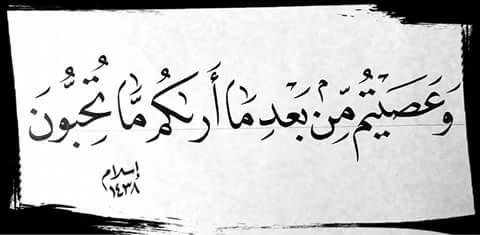 وَعَصَيْتُم مِّنْ بَعْدِ مَا أَرىٰكُم مَّا تُحِبُّونَ
إسلام
١٤٣٨